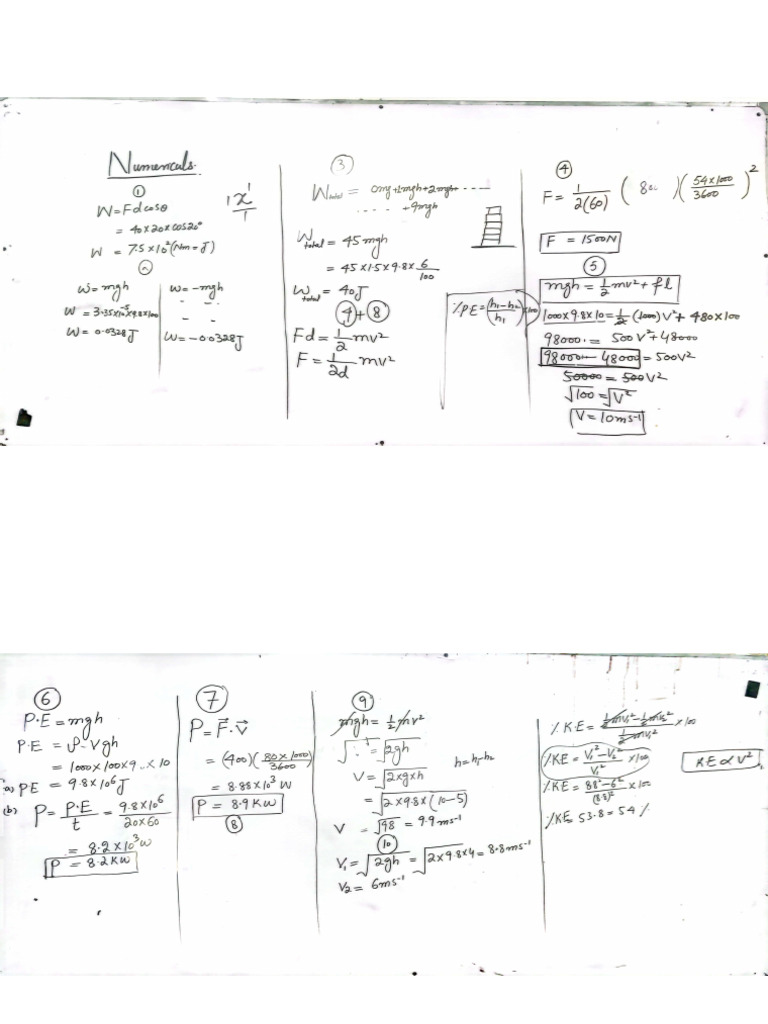 Numericals.
①
W = Fd cosθ
= 40×20×cos20°
W = 7.5×10² (Nm = J)
②
W = mgh
W = 3.35×10⁻⁵×9.8×100
W = 0.0328J
W = -mgh
W = -0.0328J
③
W total = 0mg+1mgh+2mgh+ ....
.... +9mgh
W total = 45 mgh
= 45×1.5×9.8×6/100
W total = 40J
④+⑧
Fd = 1/2 mv²
F = 1/2d mv²
%PE = (h₁-h₂/h₁)×100
④
F = 1/2(60) (8 )(54×1000/3600)²
F = 1500N
⑤
mgh = 1/2 mv² + fl
1000×9.8×10 = 1/2 (1000) V² + 480×100
98000. = 500 V² + 48000
98000 - 48000 = 500V²
50000 = 500V²
√100 = √V²
V = 10ms⁻¹
⑥
P.E = mgh
P.E = ρ-Vgh
= 1000×100×9..×10
a) PE = 9.8×10⁶J
(b) P = P.E/t = 9.8×10⁶/20×60
= 8.2×10³W
P = 8.2KW
⑦
P = F⃗.V⃗
= (400)(80×1000/3600)
= 8.88×10³ W
P = 8.9KW
⑧
⑨
mgh = 1/2 mv²
= √2gh
V = √2×g×h
h = h₁-h₂
= √2×9.8×(10-5)
V = √98 = 9.9ms⁻¹
⑩
V₁ = √2gh = √2×9.8×4 = 8.8ms⁻¹
V2 = 6ms⁻¹
%K.E = 1/2mv₁²-1/2mv₂²/1/2mv₁² ×100
%KE = V₁²-V₂²/V₁² ×100
KE∝V²
%KE = 8.8²-6²/(8.8)² ×100
%KE = 53.8 = 54%